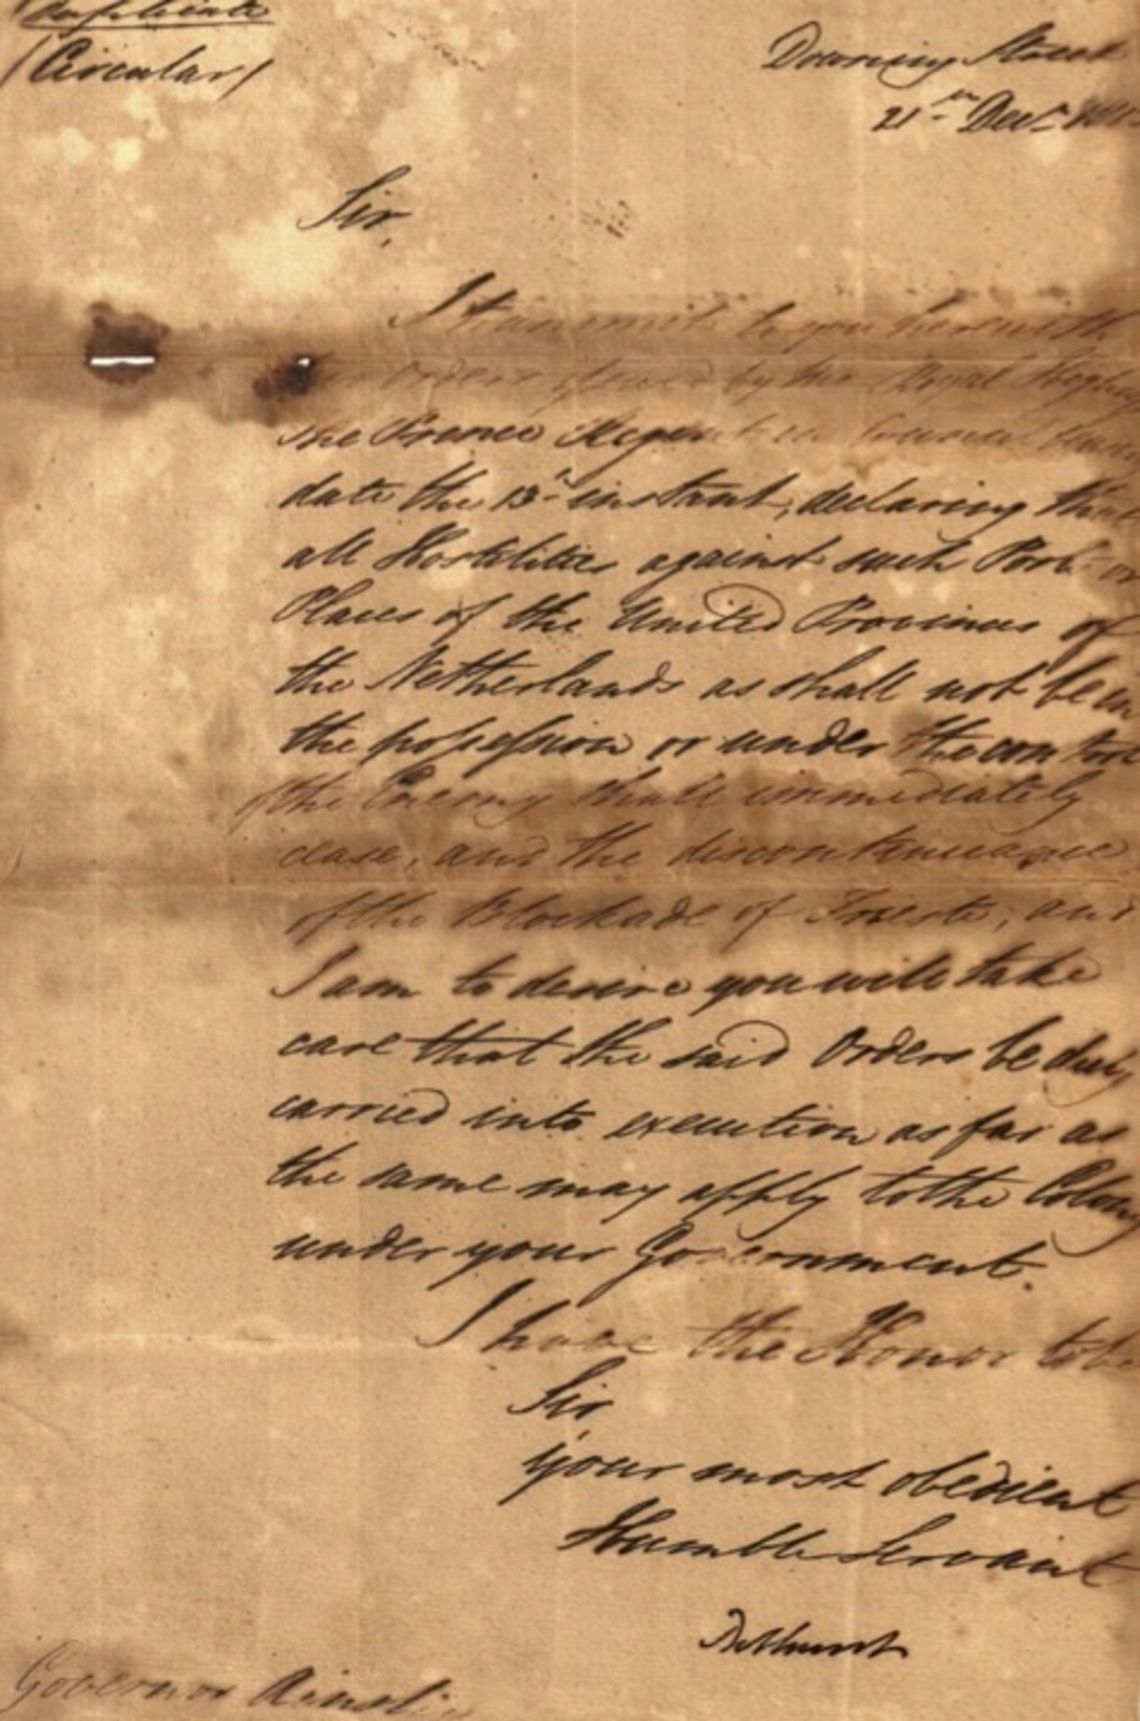 Duplicate
(Circular)
Downing Street
21st Decr 181
Sir,
I transmit to you herewith
Orders issued by His Royal Highness
the Prince Regent in Council bearing
date the 13th instant, declaring that
all Hostilities against such Ports or
Places of the United Provinces of
the Netherlands as shall not be in
the possession or under the control
of the Enemy shall immediately
cease, and the discontinuance
of the Blockade of Trieste; and
I am to desire you will take
care that the said Orders be duly
carried into execution as far as
the same may apply to the Colony
under your Government.
I have the Honor to be
Sir
your most obedient
Humble Servant
Bathurst
Governor Ainslie